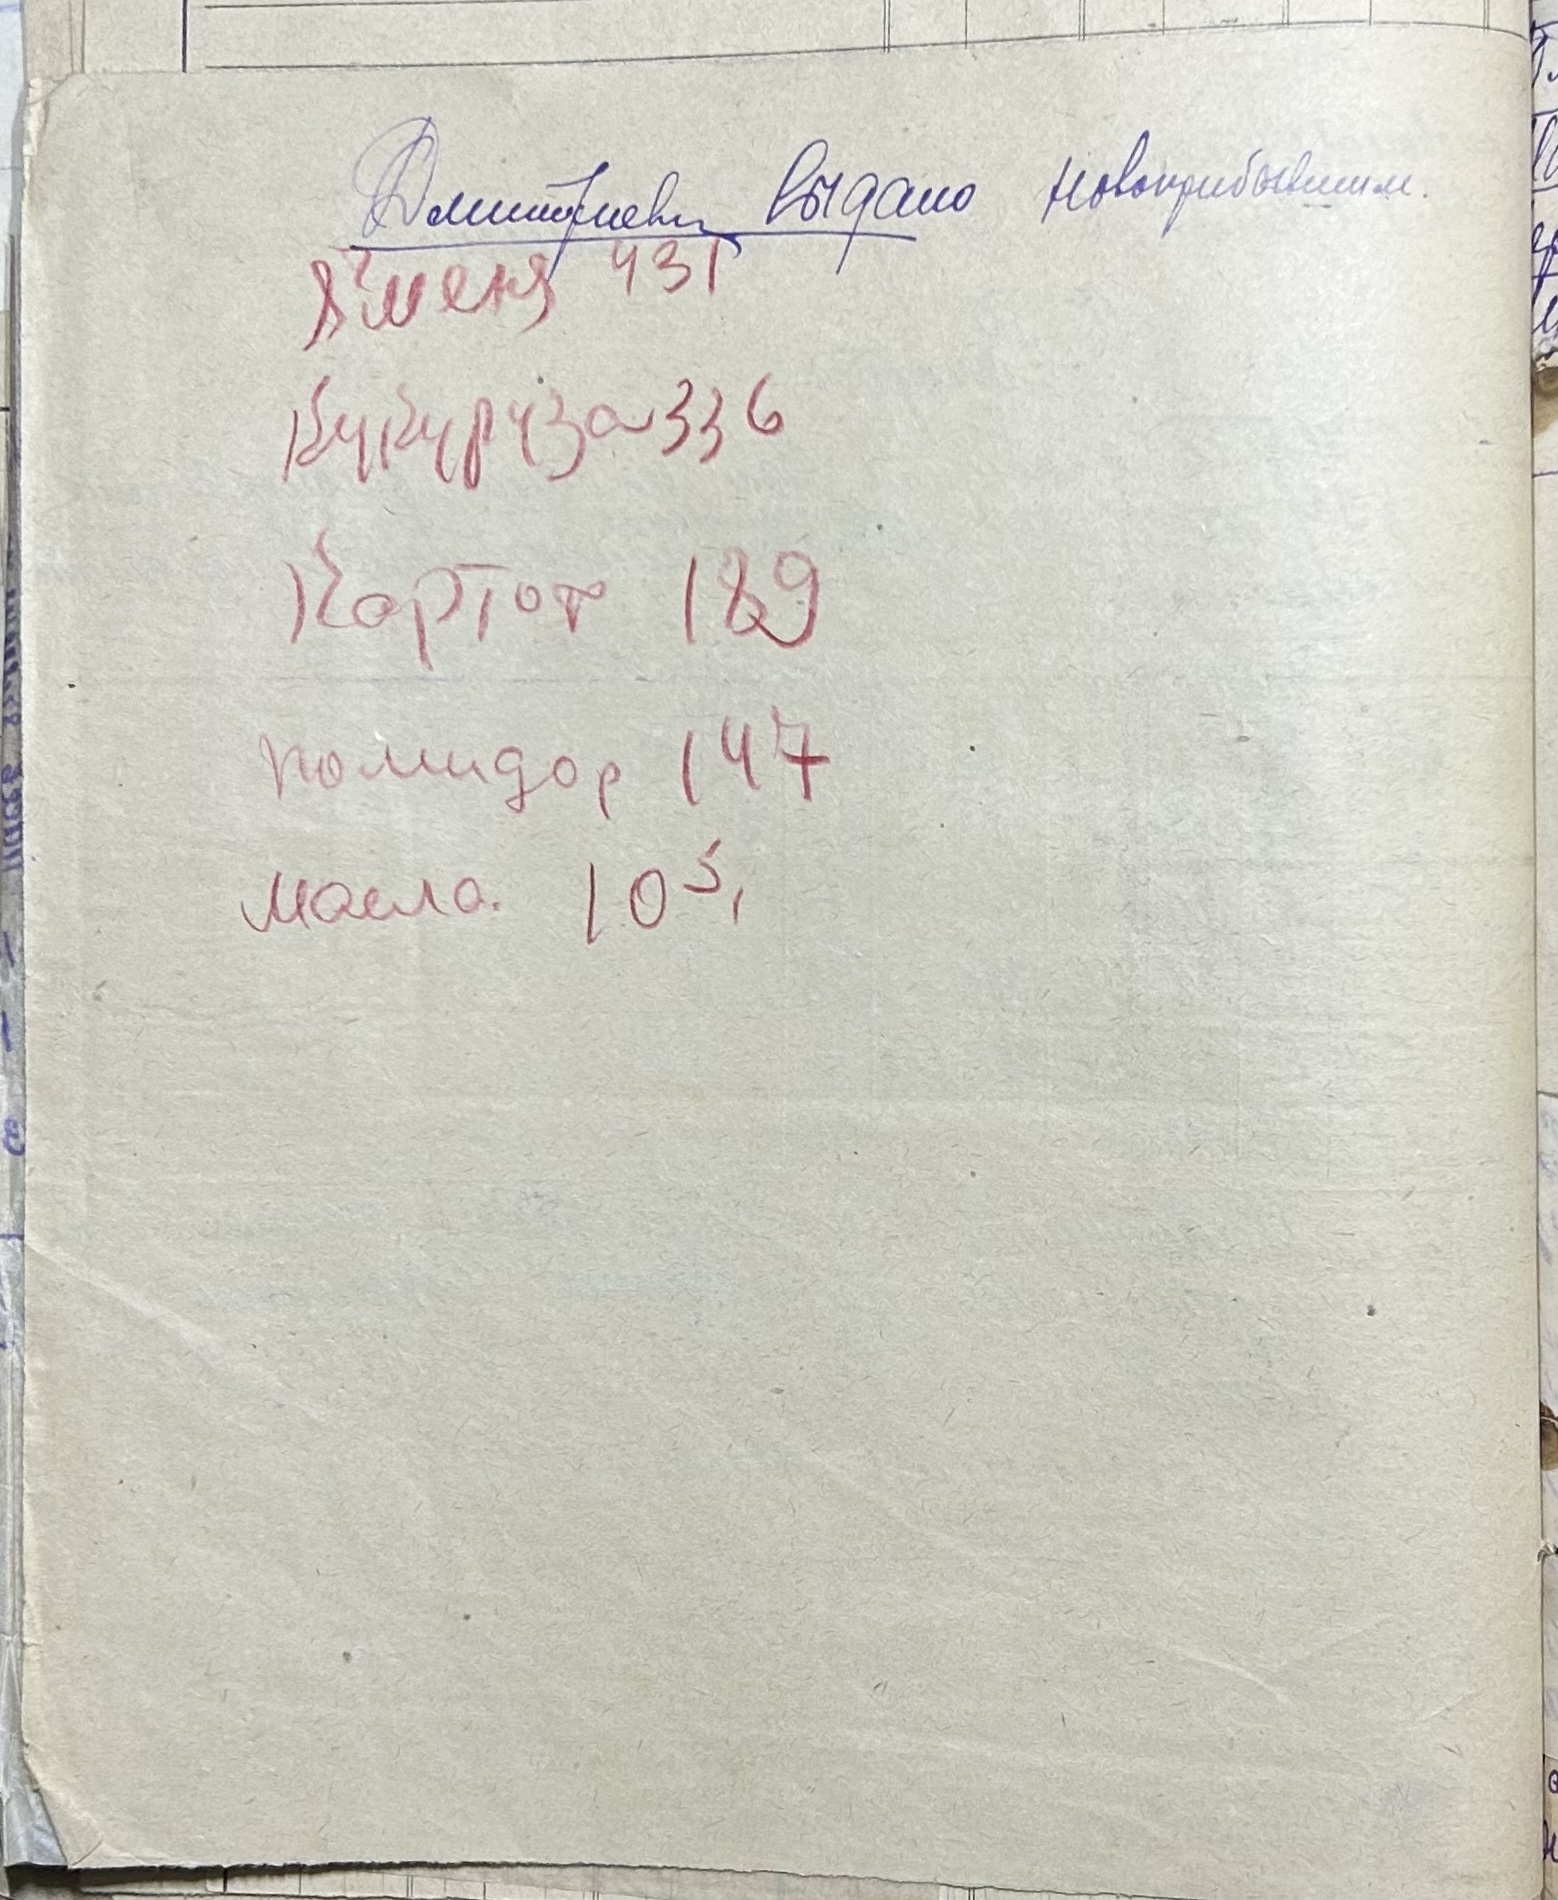 Дмитриеви Выдано новоприбывшим.
Ячменя 431
Кукуруза 336
Картоф 189
помидор 147
масла. 10⁵,